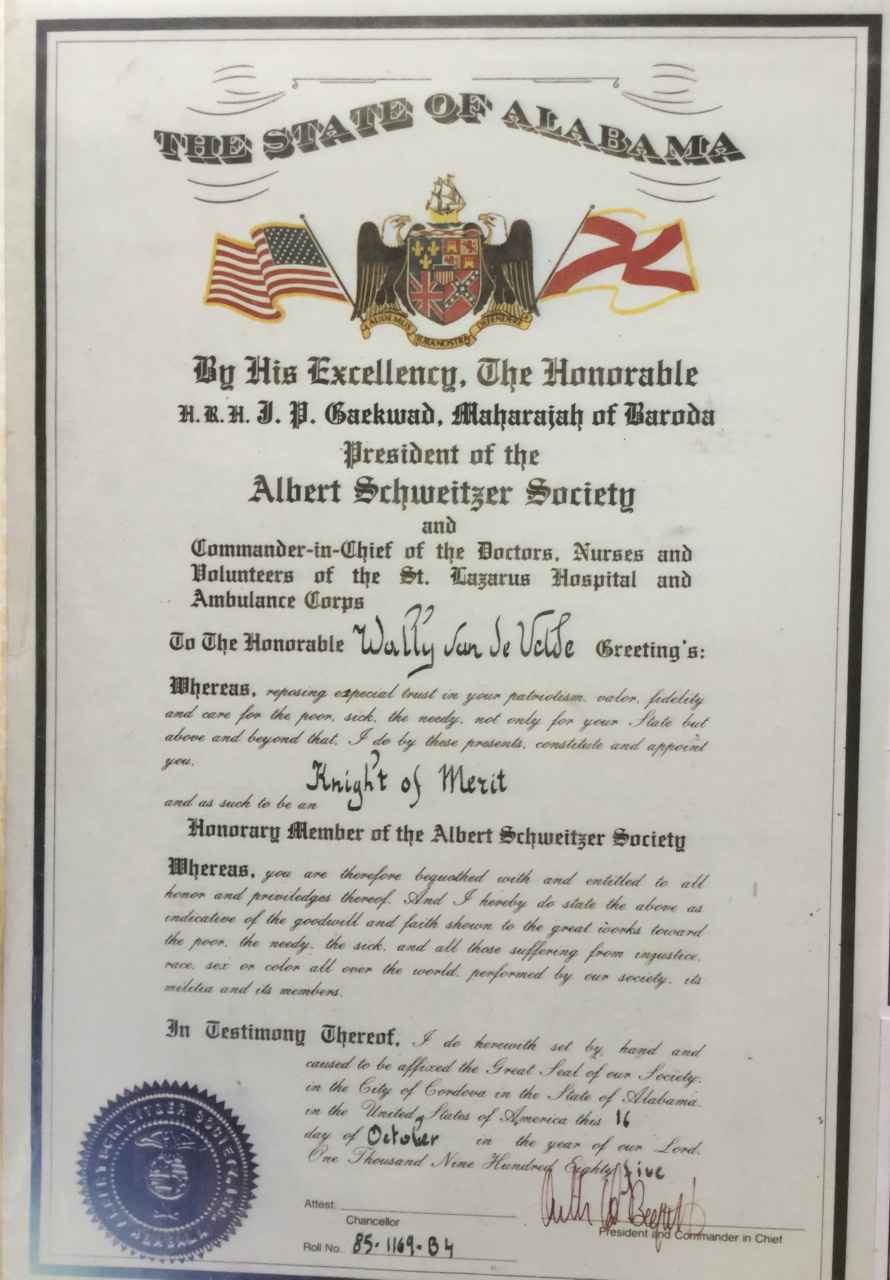 THE STATE OF ALABAMA
AUDEMUS JURA NOSTRA DEFENDERE
By His Excellency, The Honorable
H.R.H. J. P. Gaekwad, Maharajah of Baroda
President of the
Albert Schweitzer Society
and
Commander-in-Chief of the Doctors, Nurses and
Volunteers of the St. Lazarus Hospital and
Ambulance Corps
To The Honorable Wally van de Velde Greeting's:
Whereas, reposing expecial trust in your patriotism, valor, fidelity
and care for the poor, sick, the needy, not only for your State but
above and beyond that, I do by these presents, constitute and appoint
you,
Knight of Merit
and as such to be an
Honorary Member of the Albert Schweitzer Society
Whereas, you are therefore bequothed with and entitled to all
honor and priviledges thereof. And I hereby do state the above as
indicative of the goodwill and faith shown to the great works toward
the poor, the needy, the sick, and all those suffering from injustice,
race, sex or color all over the world, performed by our society, its
militia and its members.
In Testimony Thereof, I do herewith set by hand and
caused to be affixed the Great Seal of our Society,
in the City of Cordova in the State of Alabama,
in the United States of America this 16
day of October in the year of our Lord,
One Thousand Nine Hundred Eighty five
ALBERT SCHWEITZER SOCIETY, INC.
ALABAMA
Attest:
Chancellor
President and Commander in Chief
Roll No. 85-1169-B4